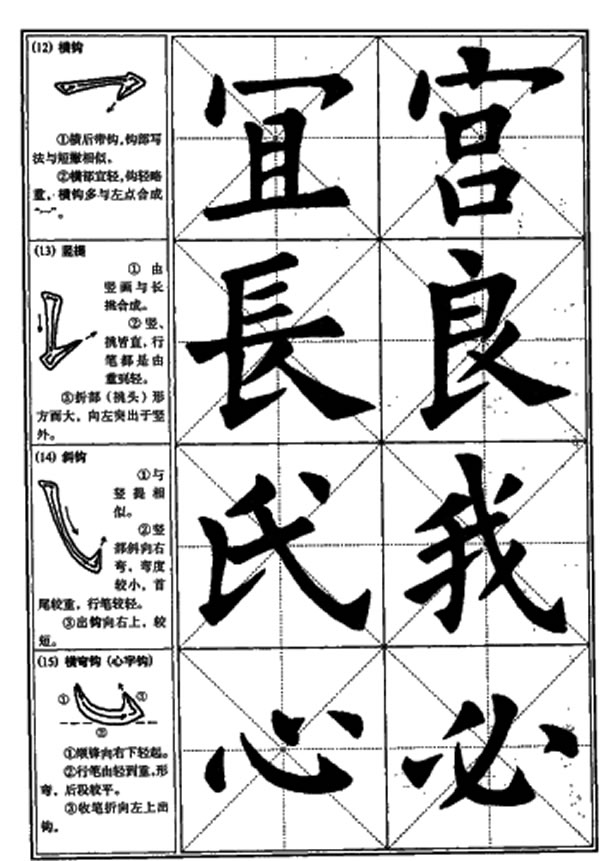 (12) 横钩
①横后带钩,钩部写
法与短撇相似。
②横部宜轻,钩轻略
重,横钩多与左点合成
“冖”。
冝 宫
(13) 竖提
① 由
竖画与长
挑合成。
② 竖、
挑皆直,行
笔都是由
重到轻。
③折部(挑头)形
方而大,向左突出于竖
外。
長 良
(14) 斜钩
①与
竖提相
似。
②竖
部斜向右
弯,弯度
较小,首
尾较重,行笔较轻。
③出钩向右上,较
短。
氏 我
(15) 横弯钩(心字钩)
① ③
②
①顺锋向右下轻起。
②行笔由轻到重,形
弯,后段较平。
③收笔折向左上出
钩。
心 必